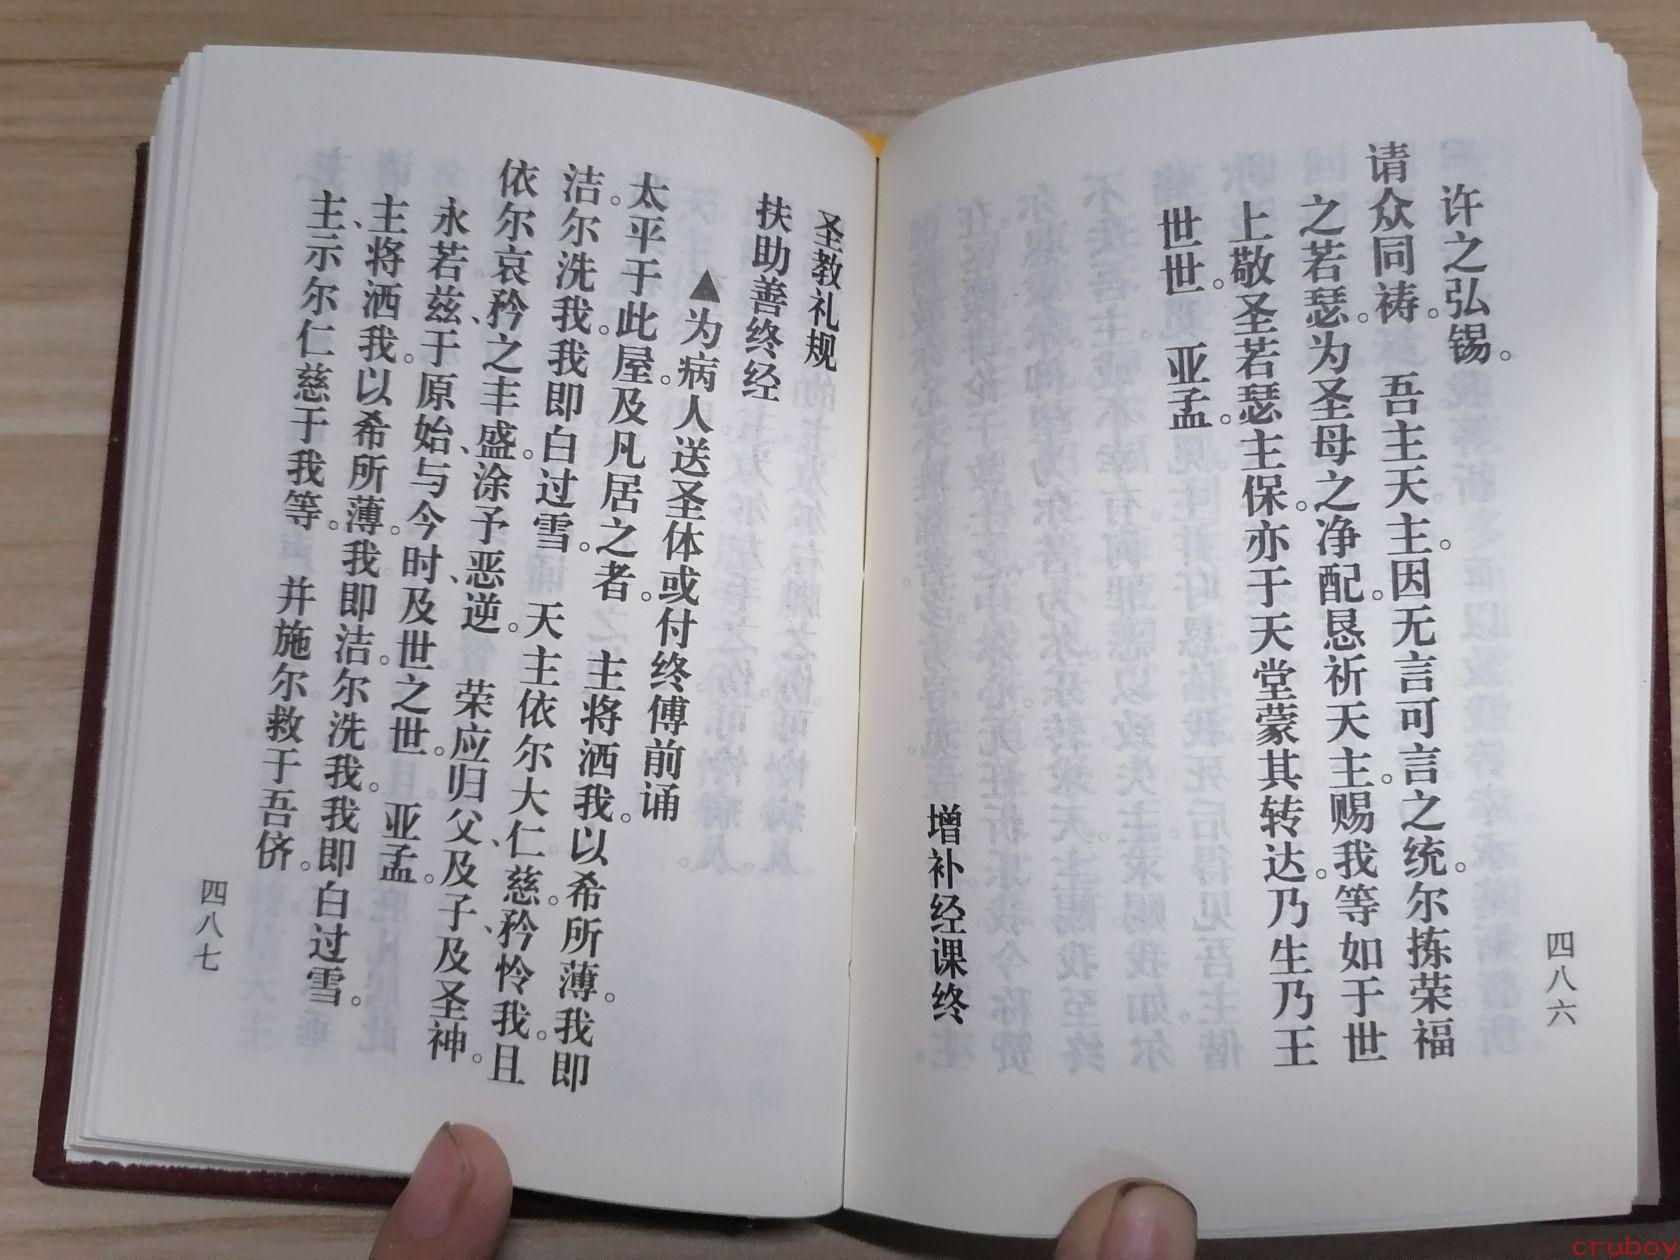 四八六
许之弘锡。
请众同祷。 吾主天主。因无言可言之统。尔拣荣福
之若瑟。为圣母之净配。恳祈天主。赐我等如于世
上敬圣若瑟主保。亦于天堂蒙其转达。乃生乃王
世世。 亚孟。
增补经课终
圣教礼规
扶助善终经
▲为病人送圣体或付终傅前诵
太平于此屋。及凡居之者。 主将洒我。以希所薄。我即
洁。尔洗我。我即白过雪。 天主依尔大仁慈、矜怜我。且
依尔哀矜、之丰盛、涂予恶逆。 荣应归父、及子、及圣神。
永若兹、于原始、与今时、及世之世。 亚孟。
主、将洒我。以希所薄。我即洁。尔洗我。我即白过雪。
主、示尔仁慈于我等。 并施尔救于吾侪。
四八七
cruboy